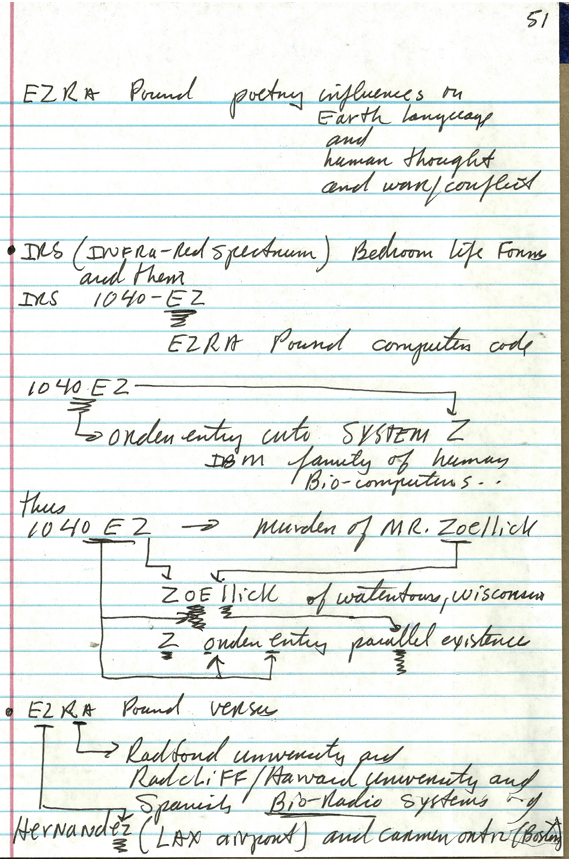 51
EZRA Pound poetry influences on
Earth language
and
human thought
and war/conflict
• IRS (INFRA-Red Spectrum) Bedroom life Forms
and them
IRS 1040-EZ
EZRA Pound computer code
1040 EZ
order entry into SYSTEM Z
IBM family of human
Bio-computers..
thus
1040 EZ → murder of MR. Zoellick
ZOEllick of watertown, wisconsin
Z order entry parallel existence
• EZRA Pound versus
Radford university and
RadcliFF/Harvard university and
Spanish Bio-Radio Systems of
Hernandez (LAX airport) and carmen ortiz (Boston)